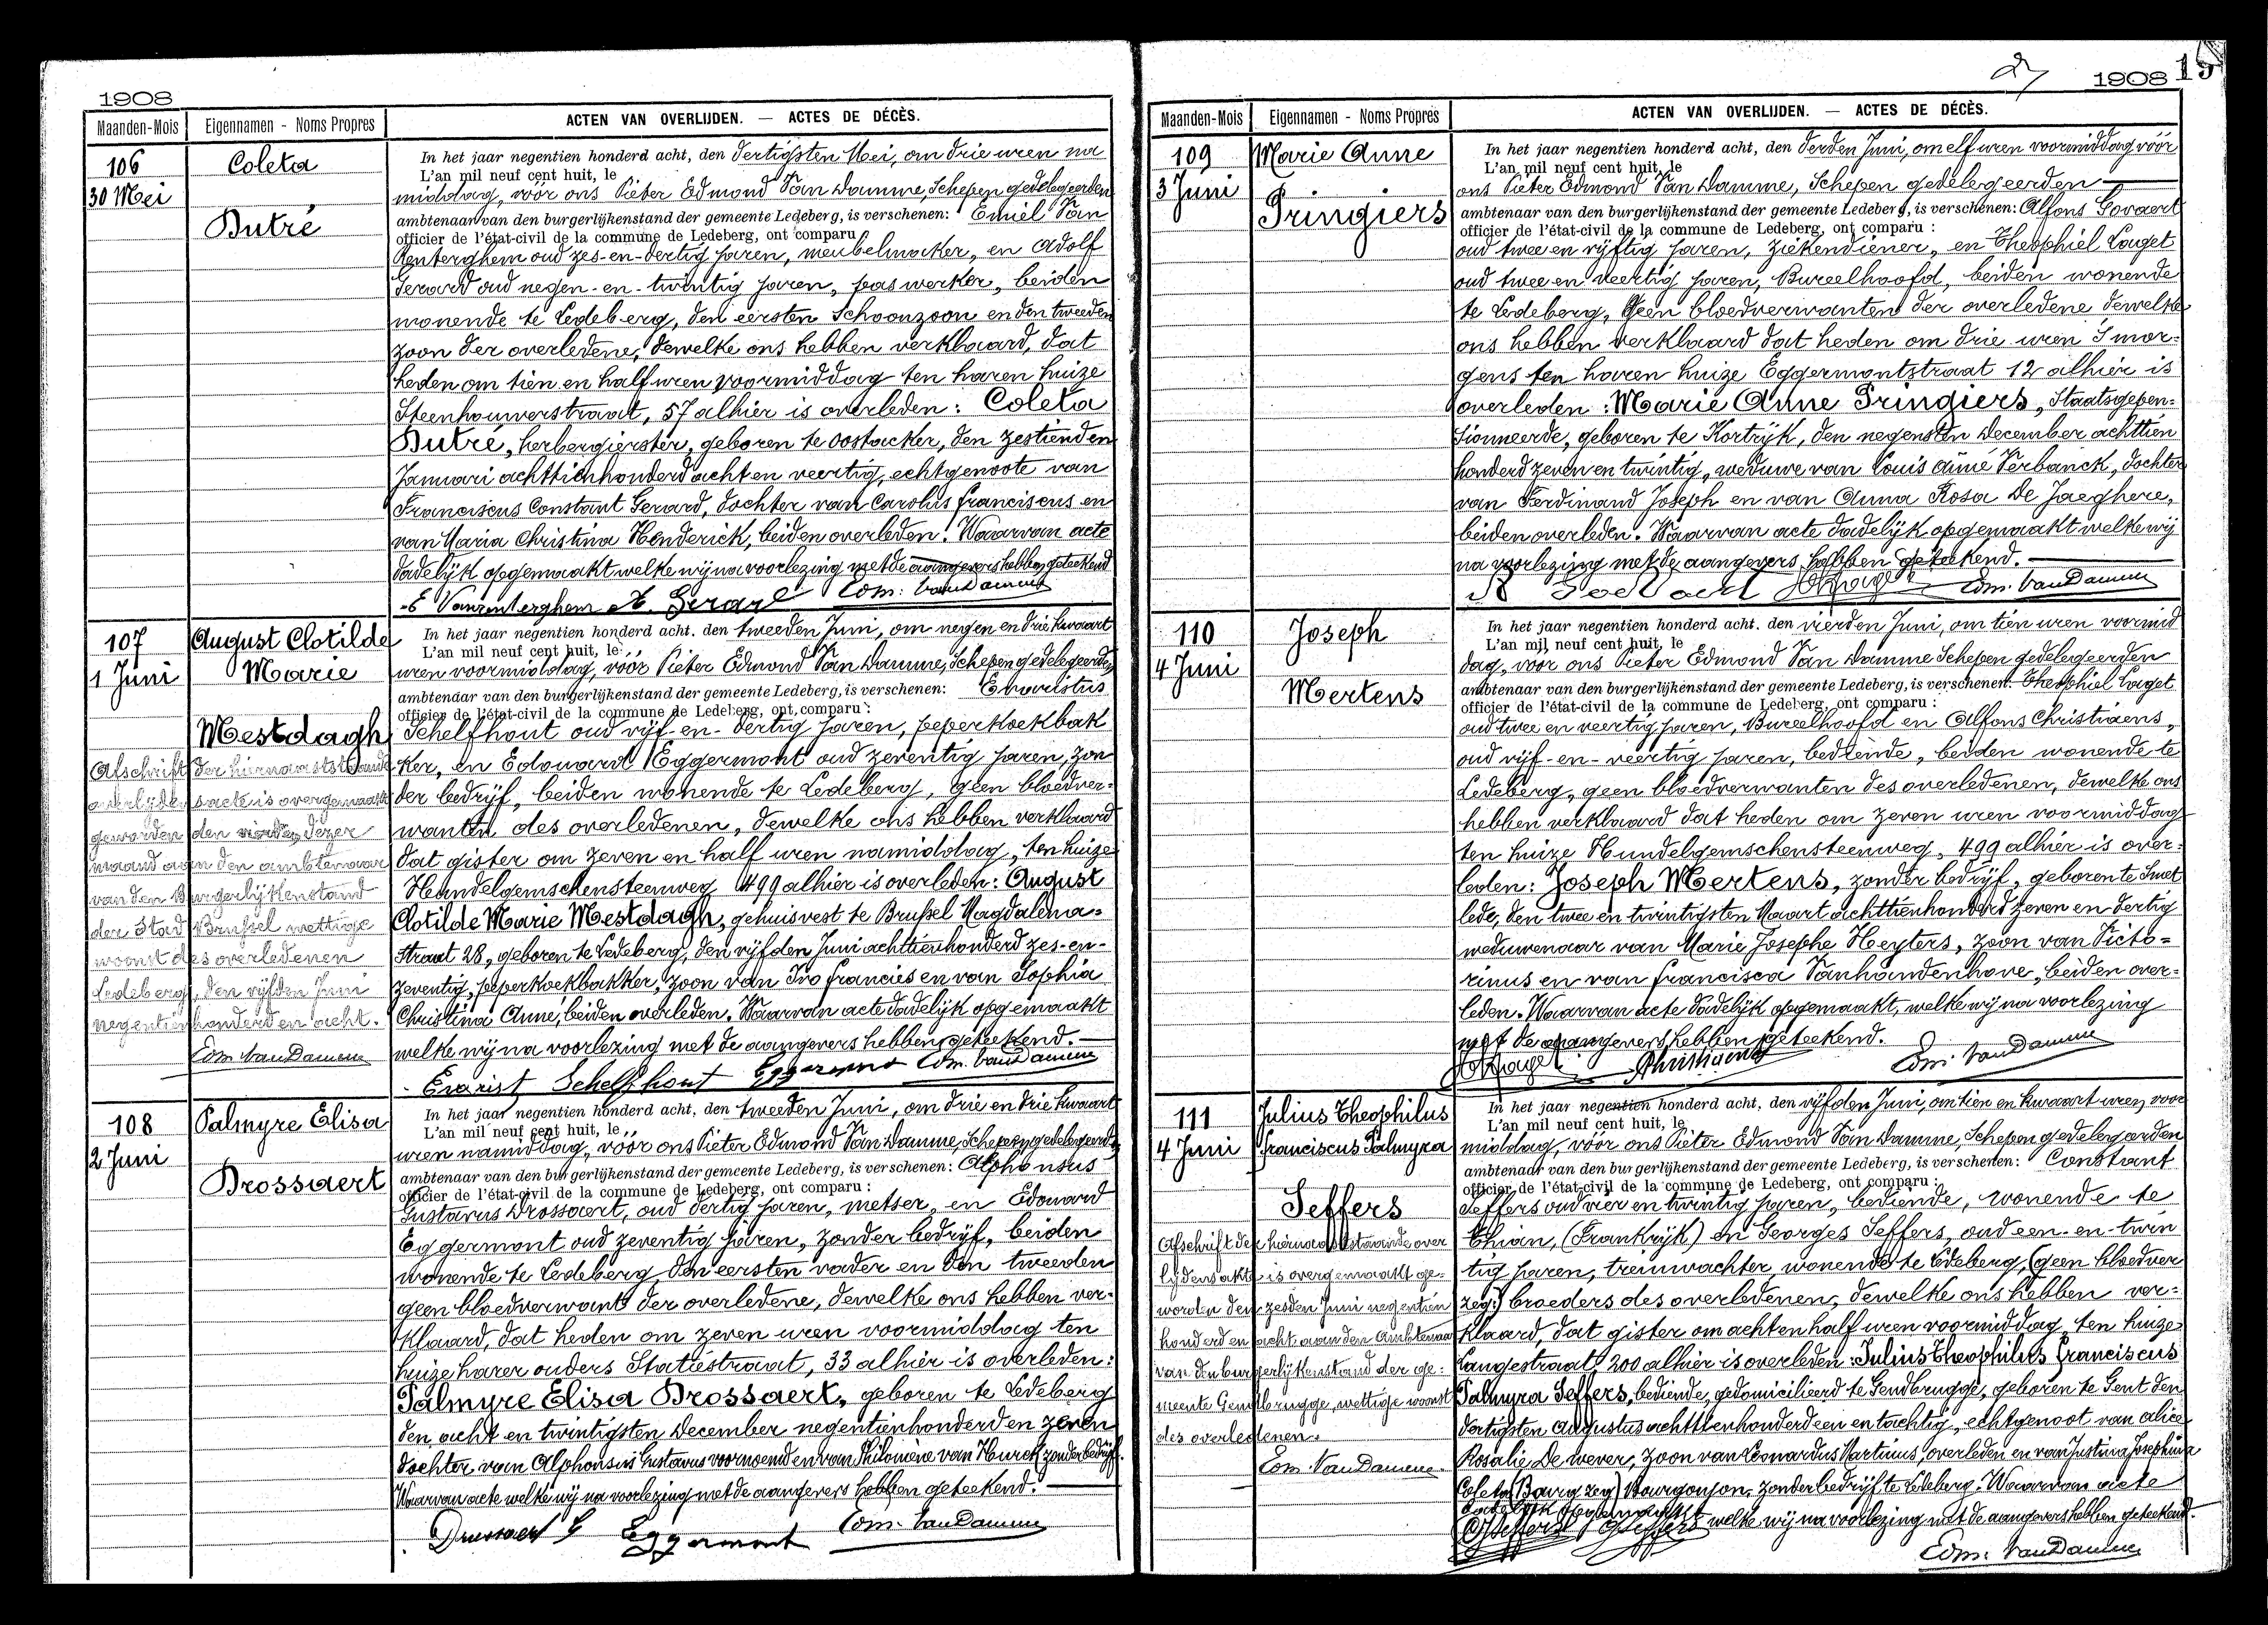 1908
Maanden-Mois Eigennamen - Noms Propres ACTEN VAN OVERLIJDEN. — ACTES DE DÉCÈS.
106
30 Mei
Coleta
Dutré
In het jaar negentien honderd acht, den dertigsten Mei, om drie uren na
L'an mil neuf cent huit, le
middag, vóór ons Pieter Edmond Van Damme, Schepen gedelegeerden
ambtenaar van den burgerlijkenstand der gemeente Ledeberg, is verschenen: Emiel Van
officier de l'état-civil de la commune de Ledeberg, ont comparu
Renterghem oud zes-en-dertig jaren, meubelmaker, en Adolf
Gerard oud negen-en-twintig jaren, paswerker, beiden
wonende te Ledeberg, den eersten Schoonzoon en den tweeden
zoon der overledene, dewelke ons hebben verklaard, dat
heden om tien en half uren voormiddag ten haren huize
Steenhouwerstraat, 57 alhier is overleden: Coleta
Dutré, herbergierster, geboren te Oostacker, den zestienden
Januari achttienhonderd acht en veertig, echtgenoote van
Franciscus Constant Gerard, dochter van Carolus Franciscus en
van Maria Christina Henderick, beiden overleden. Waarvan acte
dadelijk opgemaakt welke wij na voorlezing met de aangevers hebben geteekend
E Vanrenterghem A. Gerard Edm. Van Damme
107
1 Juni
August Clotilde
Marie
Mestdagh
Afschrift der hiernaaststaande
overlijdensacte is overgemaakt
geworden den vierden dezer
maand aan den ambtenaar
van den Burgerlijkenstand
der Stad Brussel wettige
woonst des overledenen
Ledeberg, den vijfden Juni
negentienhonderd en acht.
Edm. Van Damme
In het jaar negentien honderd acht, den tweeden Juni, om negen en drie kwaart
L'an mil neuf cent huit, le
uren voormiddag, vóór Pieter Edmond Van Damme, Schepen gedelegeerden
ambtenaar van den burgerlijkenstand der gemeente Ledeberg, is verschenen: Evaristus
officier de l'état-civil de la commune de Ledeberg, ont comparu:
Schelfhout oud vijf-en-dertig jaren, peperkoekbak
ker, en Edouard Eggermont oud zeventig jaren, zon
der bedrijf, beiden wonende te Ledeberg, geen bloedver-
wanten des overledenen, dewelke ons hebben verklaard
dat gister om zeven en half uren namiddag, ten huize
Hundelgemschensteenweg 499 alhier is overleden: August
Clotilde Marie Mestdagh, gehuisvest te Brussel Magdalena-
Straat 28, geboren te Ledeberg, den vijfden Juni achttienhonderd zes-en-
zeventig, peperkoekbakker, zoon van Ivo Francies en van Sophia
Christina Anné, beiden overleden. Waarvan acte dadelijk opgemaakt
welke wij na voorlezing met de aangevers hebben geteekend.
Evarist Schelfhout Eggermont Edm. Van Damme
108
2 Juni
Palmyre Elisa
Drossaert
In het jaar negentien honderd acht, den tweeden Juni, om drie en drie kwaart
L'an mil neuf cent huit, le
uren namiddag, vóór ons Pieter Edmond Van Damme, Schepen gedelegeerden
ambtenaar van den burgerlijkenstand der gemeente Ledeberg, is verschenen: Alphonsus
officier de l'état-civil de la commune de Ledeberg, ont comparu:
Gustavus Drossaert, oud dertig jaren, metser, en Edouard
Eggermont oud zeventig jaren, zonder bedrijf, beiden
wonende te Ledeberg, den eersten vader en den tweeden
geen bloedverwant der overledene, dewelke ons hebben ver-
klaard, dat heden om zeven uren voormiddag ten
huize harer ouders Statiestraat, 33 alhier is overleden:
Palmyre Elisa Drossaert, geboren te Ledeberg
den acht en twintigsten December negentienhonderd en zeven
dochter van Alphonsus Gustavus voornoemd en van Philomène van Hurck zonder bedrijf.
Waarvan acte welke wij na voorlezing met de aangevers hebben geteekend.
Drossaert G Eggermont Edm. Van Damme
1908
Maanden-Mois Eigennamen - Noms Propres ACTEN VAN OVERLIJDEN. — ACTES DE DÉCÈS.
109
3 Juni
Marie Anne
Pringiers
In het jaar negentien honderd acht, den derden Juni, om elf uren voormiddag vóór
L'an mil neuf cent huit, le
ons Pieter Edmond Van Damme, Schepen gedelegeerden
ambtenaar van den burgerlijkenstand der gemeente Ledeberg, is verschenen: Alfons Govaert
officier de l'état-civil de la commune de Ledeberg, ont comparu:
oud twee en vijftig jaren, ziekendiener, en Theophiel Laget
oud twee en veertig jaren, Bureelhoofd, beiden wonende
te Ledeberg, geen bloedverwanten der overledene dewelke
ons hebben verklaard dat heden om drie uren S'mor-
gens ten haren huize Eggermontstraat 12 alhier is
overleden: Marie Anne Pringiers, Staatsgepen-
sionneerde, geboren te Kortrijk, den negensten December achttien
honderd zeven en twintig, weduwe van Louis Aimé Verbanck, dochter
van Ferdinand Joseph en van Anna Rosa De Jaeghere,
beiden overleden. Waarvan acte dadelijk opgemaakt welke wij
na voorlezing met de aangevers hebben geteekend.
Edm. Van Damme
110
4 Juni
Joseph
Mertens
In het jaar negentien honderd acht, den vierden Juni, om tien uren voormid
L'an mil neuf cent huit, le
dag, voor ons Pieter Edmond Van Damme Schepen gedelegeerden
ambtenaar van den burgerlijkenstand der gemeente Ledeberg, is verschenen: Theophiel Laget
officier de l'état-civil de la commune de Ledeberg, ont comparu:
oud twee en veertig jaren, Bureelhoofd en Alfons Christiaens,
oud vijf-en-veertig jaren, bediende, beiden wonende te
Ledeberg, geen bloedverwanten des overledenen, dewelke ons
hebben verklaard dat heden om zeven uren voormiddag
ten huize Hundelgemschensteenweg, 499 alhier is over-
leden: Joseph Mertens, zonder bedrijf, geboren te Smet
lede, den twee en twintigsten Maart achttienhonderd zeven en dertig
weduwenaar van Marie Josephe Heyters, zoon van Victo-
rinus en van Francisca Vanhoudenhove, beiden over-
leden. Waarvan acte dadelijk opgemaakt, welke wij na voorlezing
met de aangevers hebben geteekend.
AChristiaens Edm. Van Damme
111
4 Juni
Julius Theophilus
Franciscus Palmyra
Seffers
Afschrift der hiernaaststaande over
lijdensakte is overgemaakt ge-
worden den zesden Juni negentien
honderd en acht aan den Ambtenaar
van den burgerlijkenstand der ge-
meente Gendbrugge, wettige woonst
des overledenen.
Edm. Van Damme
In het jaar negentien honderd acht, den vijfden Juni, om tien en kwaart uren voor
L'an mil neuf cent huit, le
middag, vóór ons Pieter Edmond Van Damme, Schepen gedelegeerden
ambtenaar van den burgerlijkenstand der gemeente Ledeberg, is verschenen: Constant
officier de l'état-civil de la commune de Ledeberg, ont comparu:
Seffers oud vier en twintig jaren, bediende, wonende te
Thian, (Frankrijk) en Georges Seffers, oud een-en-twin
tig jaren, treinwachter wonende te Ledeberg, (geen bloedver
zeg:) broeders des overledenen, dewelke ons hebben ver-
klaard, dat gister om acht en half uren voormiddag, ten huize
Langestraat, 200 alhier is overleden: Julius Theophilus Franciscus
Palmyra Seffers, bediende, gedomicilieerd te Gendbrugge, geboren te Gent den
dertigsten Augustus achttienhonderd een en tachtig, echtgenoot van Alice
Rosalie De wever, zoon van Leonardus Martinus, overleden en van Justina Josephina
Coleta (Bourg zeg) Bourgonjon, zonder bedrijf te Ledeberg. Waarvan acte
dadelijk opgemaakt welke wij na voorlezing met de aangevers hebben geteekend.
CSeffers GSeffers
Edm. Van Damme